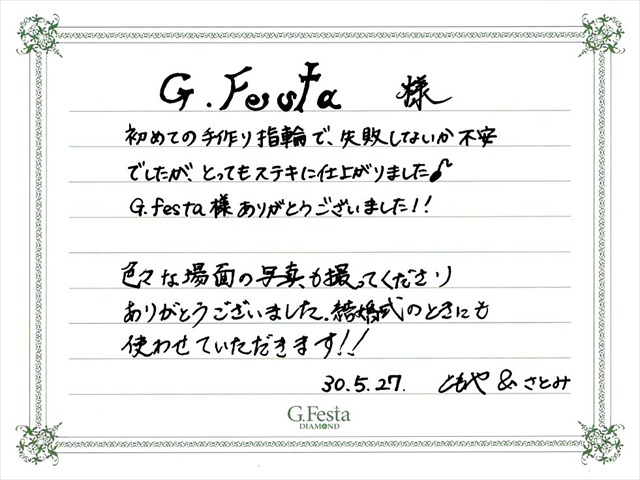 G.Festa 様
初めての手作り指輪で、失敗しないか不安
でしたが、とってもステキに仕上がりました♪
G.festa様ありがとうございました!!
色々な場面の写真も撮ってくださり
ありがとうございました。結婚式のときにも
使わせていただきます!!
30.5.27. ともや & さとみ
G.Festa
DIAMOND